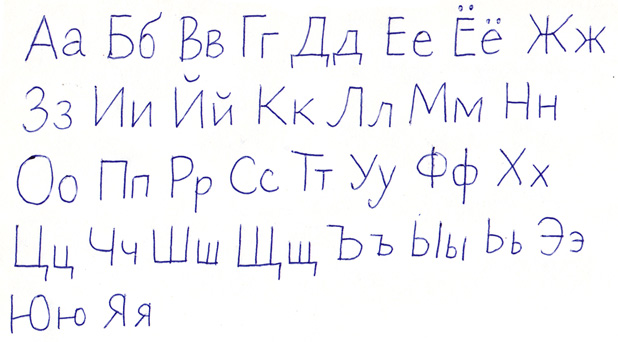 Аа Бб Вв Гг Дд Ее Ёё Жж
Зз Ии Йй Кк Лл Мм Нн
Оо Пп Рр Сс Тт Уу Фф Хх
Цц Чч Шш Щщ Ъъ Ыы Ьь Ээ
Юю Яя